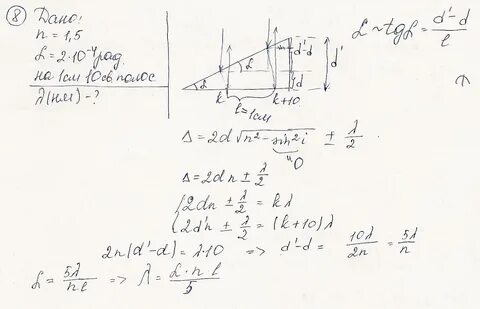 ⑧ Дано:
n = 1,5
α = 2·10⁻⁴ рад.
на 1см 10 св полос
λ(нм) - ?
α ~ tgα = (d'-d)/l
d'-d
d'
d
α
α
k
k+10
l=1см
Δ = 2d√(n² - sin²i) ± λ/2
0
Δ = 2dn ± λ/2
{2dn ± λ/2 = kλ
{2d'n ± λ/2 = (k+10)λ
2n(d'-d) = λ·10 => d'-d = 10λ/2n = 5λ/n
α = 5λ/nl => λ = α·n l/5